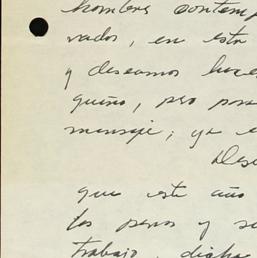 hombres contemp
vados, en esta
y deseamos hace
queño, pero pos
mensaje; ya e
Des
que este año
las penas y s
trabajo, dicha